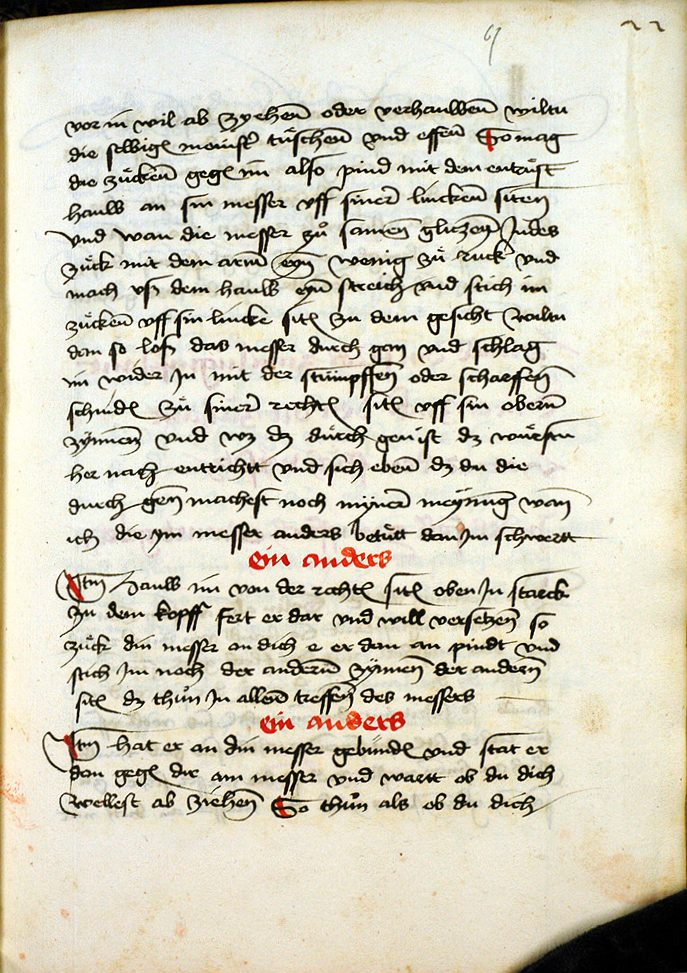 22
vor in wil ab zyehen oder verhauwen wiltu
die selbigen meinster tuschen vnd effen So mag
die zucken gegen im also pind mit dem entrust
hauw an sin messer vff siner lincken siten
vnd wan die messer zu samen gliczen Indes
zuck mit dem arm eyn wenig zu ruck vnd
mach vß dem hauw eyn streich vnd stich im
zucken vff sin lincke siten zu dem gesicht wiltu
dan so loß das messer durch gen vnd schlag
im wider In mit der stumpffen oder scharffen
schniden zu siner rechten siten vff sin obern
zynnen vnd wz dz durch gen ist dz wurstu
her nach entrichtt vnd sich eben dz du die
durch gen machest noch myner meynung wan
ich die ym messer anders betutt dan Im schwertt
ein anders
Itm hauw im von der rechten siten oben In starck
zu dem kopff fert er dar vnd will versetzen so
zuck din messer an dich e er dan an pindt vnd
stich Im noch der andern zynnen der andern
siten dz thun In allen treffen des messers
ein anders
Itm hat er an din messer gebunden vnd stat er
dan gegen dir am messer vnd wartt ob du dich
wellest ab ziehen So thun als ob du dich